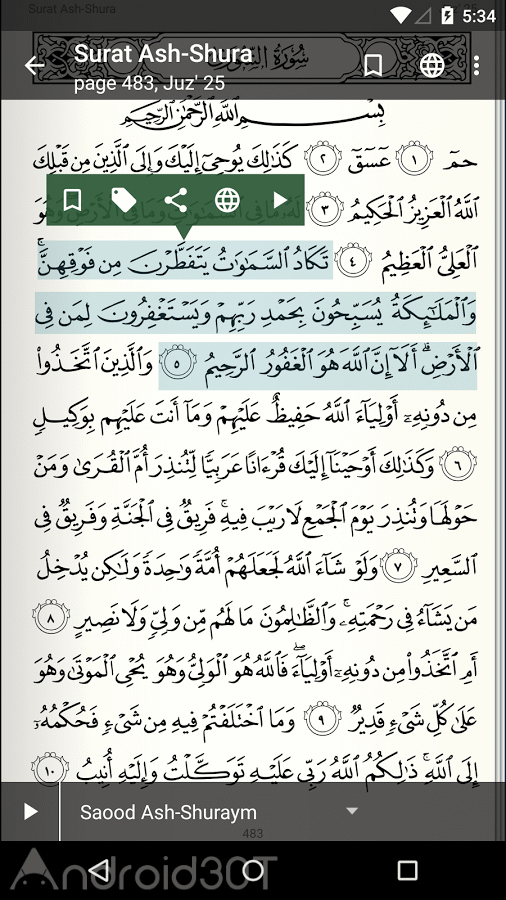 Surat Ash-Shura
5:34
Surat Ash-Shura
page 483, Juz' 25
بِسْمِ ٱللَّهِ ٱلرَّحْمَٰنِ ٱلرَّحِيمِ
حمٓ ١ عٓسٓقٓ ٢ كَذَٰلِكَ يُوحِىٓ إِلَيْكَ وَإِلَى ٱلَّذِينَ مِن قَبْلِكَ
ٱللَّهُ ٱلْعَزِيزُ ٱلْحَكِيمُ ٣ لَهُۥ مَا فِى ٱلسَّمَٰوَٰتِ وَمَا فِى ٱلْأَرْضِ وَهُوَ
ٱلْعَلِىُّ ٱلْعَظِيمُ ٤ تَكَادُ ٱلسَّمَٰوَٰتُ يَتَفَطَّرْنَ مِن فَوْقِهِنَّ ۚ
وَٱلْمَلَٰٓئِكَةُ يُسَبِّحُونَ بِحَمْدِ رَبِّهِمْ وَيَسْتَغْفِرُونَ لِمَن فِى
ٱلْأَرْضِ ۗ أَلَآ إِنَّ ٱللَّهَ هُوَ ٱلْغَفُورُ ٱلرَّحِيمُ ٥ وَٱلَّذِينَ ٱتَّخَذُوا۟
مِن دُونِهِۦٓ أَوْلِيَآءَ ٱللَّهُ حَفِيظٌ عَلَيْهِمْ وَمَآ أَنتَ عَلَيْهِم بِوَكِيلٍ
٦ وَكَذَٰلِكَ أَوْحَيْنَآ إِلَيْكَ قُرْءَانًا عَرَبِيًّا لِّتُنذِرَ أُمَّ ٱلْقُرَىٰ وَمَنْ
حَوْلَهَا وَتُنذِرَ يَوْمَ ٱلْجَمْعِ لَا رَيْبَ فِيهِ ۚ فَرِيقٌ فِى ٱلْجَنَّةِ وَفَرِيقٌ فِى
ٱلسَّعِيرِ ٧ وَلَوْ شَآءَ ٱللَّهُ لَجَعَلَهُمْ أُمَّةً وَٰحِدَةً وَلَٰكِن يُدْخِلُ
مَن يَشَآءُ فِى رَحْمَتِهِۦ ۚ وَٱلظَّٰلِمُونَ مَا لَهُم مِّن وَلِىٍّ وَلَا نَصِيرٍ ٨
أَمِ ٱتَّخَذُوا۟ مِن دُونِهِۦٓ أَوْلِيَآءَ ۖ فَٱللَّهُ هُوَ ٱلْوَلِىُّ وَهُوَ يُحْىِ ٱلْمَوْتَىٰ وَهُوَ
عَلَىٰ كُلِّ شَىْءٍ قَدِيرٌ ٩ وَمَا ٱخْتَلَفْتُمْ فِيهِ مِن شَىْءٍ فَحُكْمُهُۥٓ
إِلَى ٱللَّهِ ۚ ذَٰلِكُمُ ٱللَّهُ رَبِّى عَلَيْهِ تَوَكَّلْتُ وَإِلَيْهِ أُنِيبُ ١٠
Saood Ash-Shuraym
483
Android30T